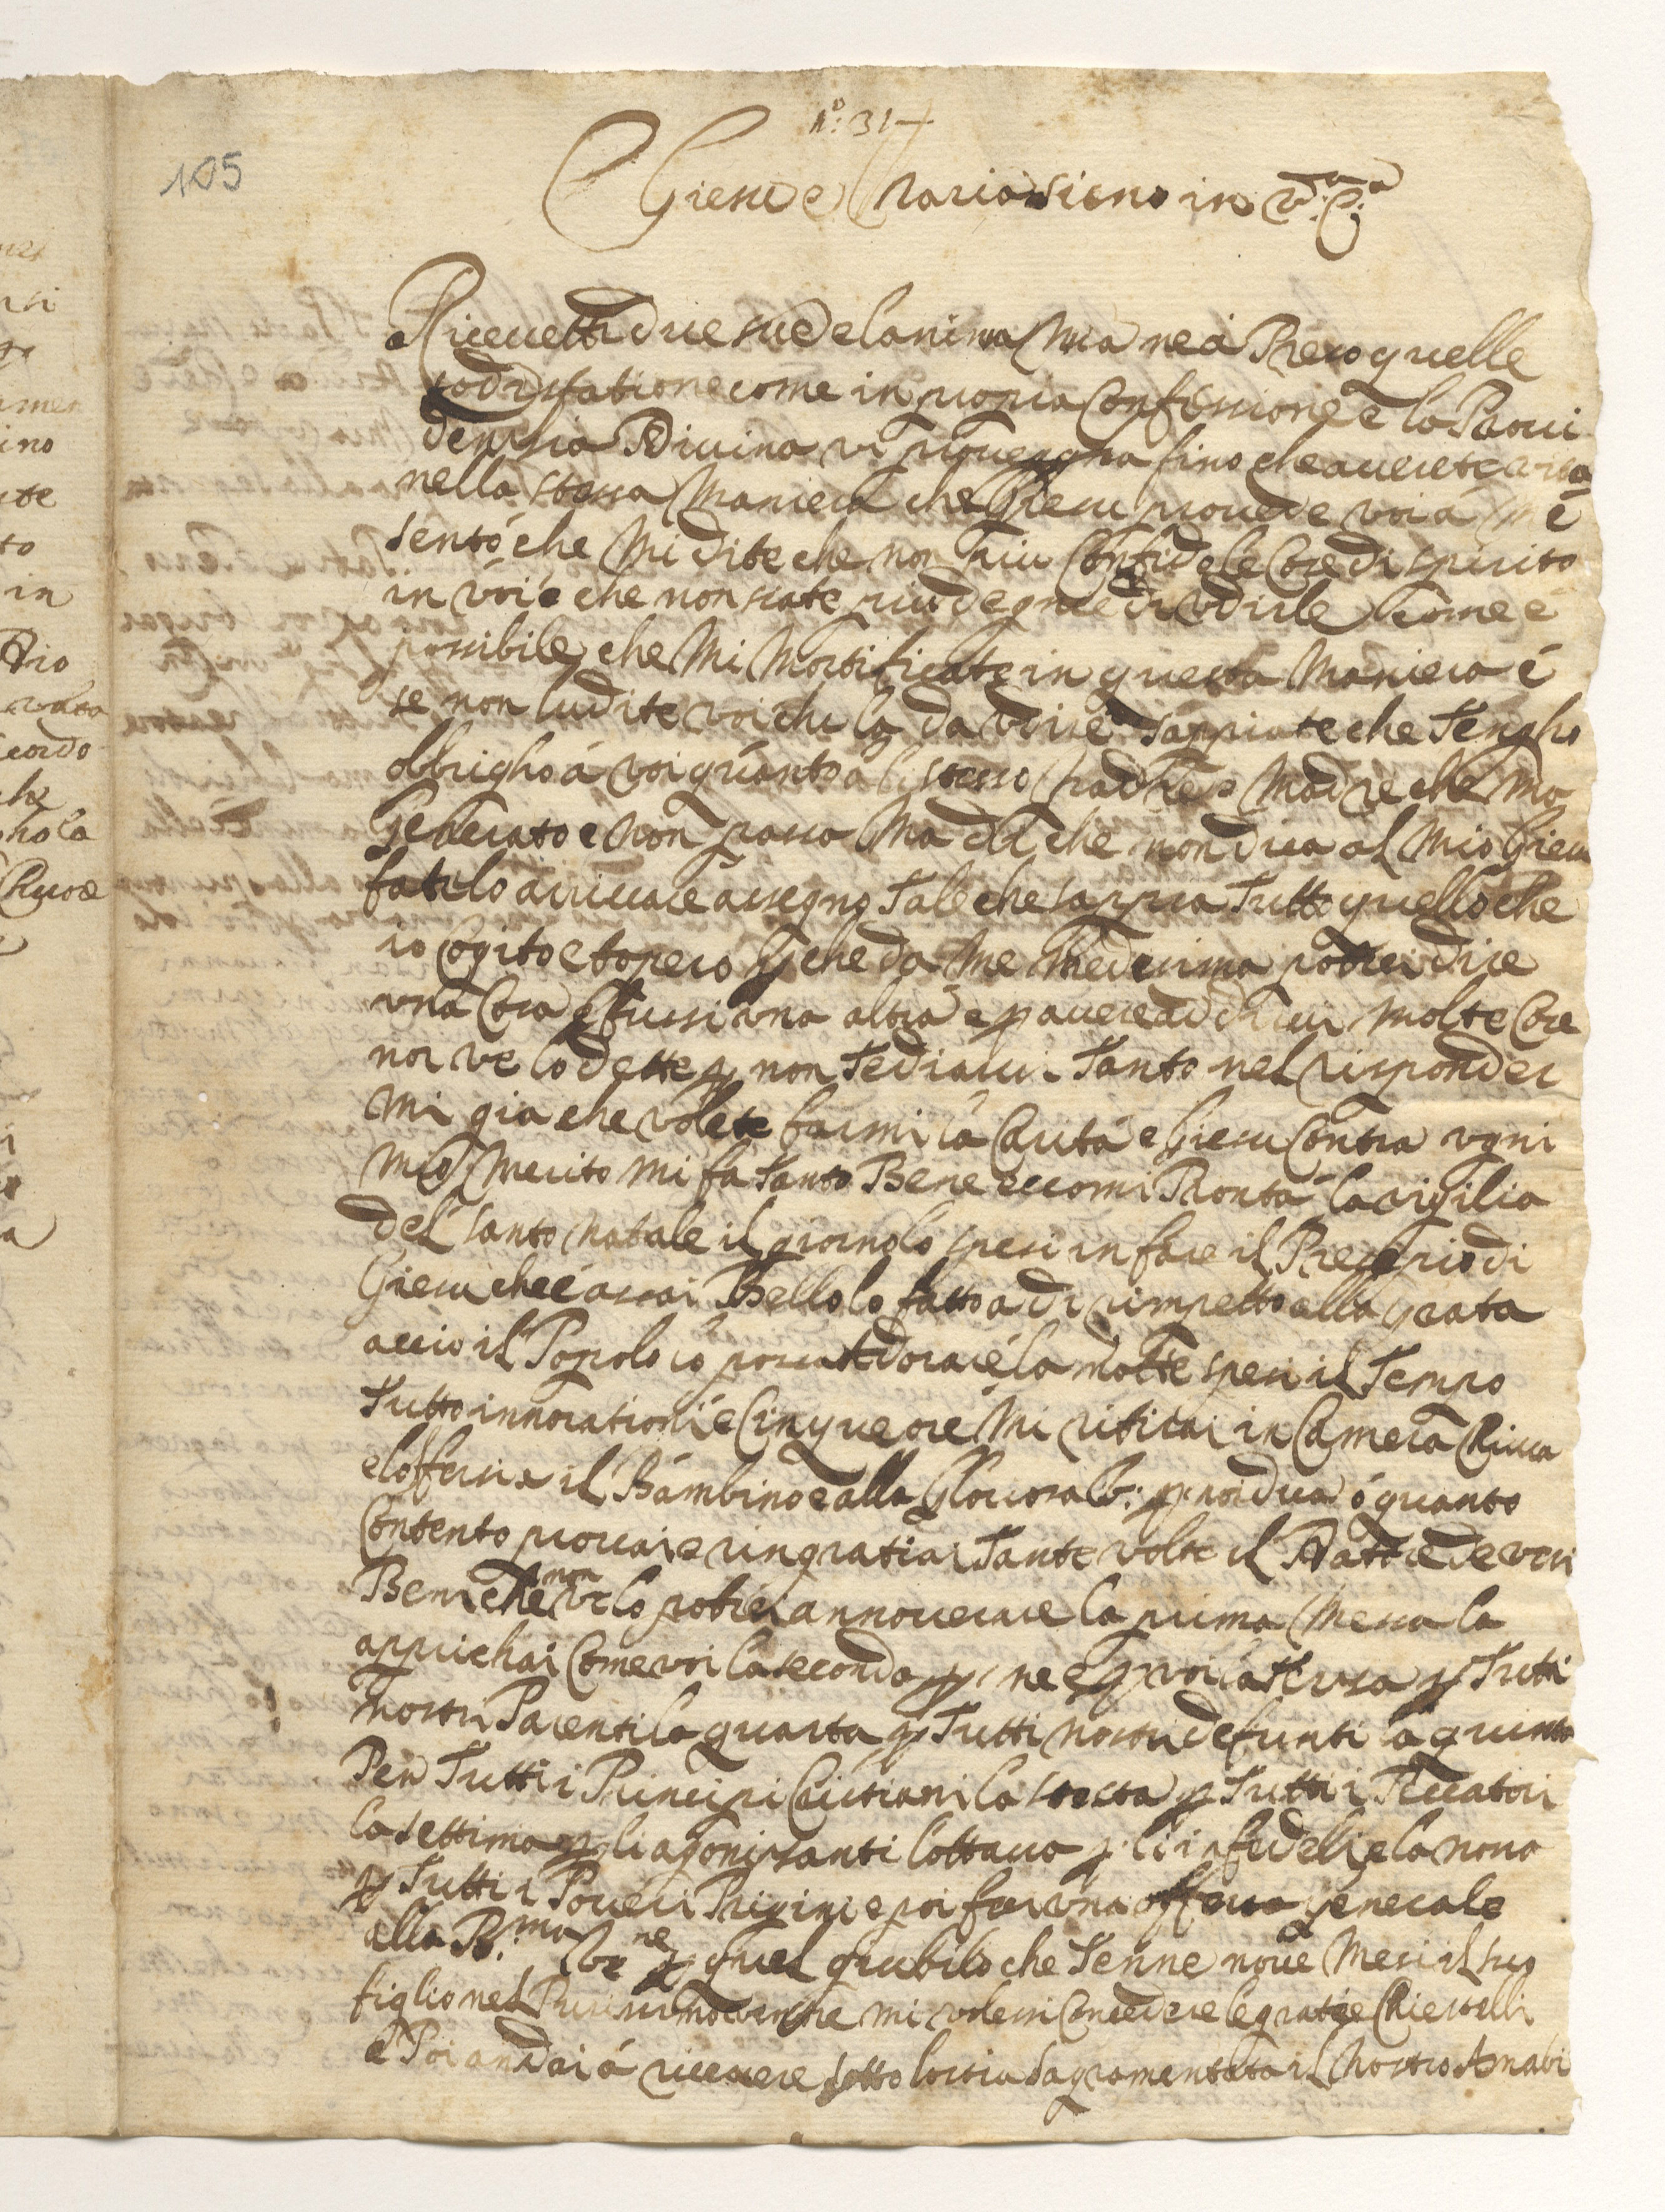 N.º: 31
105
Giesu e Maria sieno in V. C.
Riceuetti due sue de lanima Mia ne á Preso quelle
sodisfatione come in propria Confessione e la Proui
densia Diuina vi prouengha fino che auerete vita
nella stessa Maniera che Giesu prouede voi á Me é
sentó che Mi dite che non piu Confido le Cose di spirito
in vói é che non siate piu degne di vdirle Come é
possibile che Mi Mortificate in questa Maniera é
se non ludite voi chi la da vdire sappiate che Tengho
obbrigho á voi quánto á listesso Padre e Madre che Ma
Generato e non passa Ma di che non dica al Mio Giesu
fatelo arriuare assegno Tale che sappia Tutto quello che
io Cogito et opero p che da Me Medesima potrei dire
vna Cosa e fussi vna altra e p auere ad dirui Molte Cose
noi ve lo dette p non Tediarui Tanto nel risponder
Mi gia che volete farmi la Carita e Giesu Contra ogni
Mio Merito Mi fa Tanto Bene eccomi Pronta la vigilia
del santo natale il giorno lo spesi in fare il Presepio di
Giesu che é assai Bello lo fatto a di rimpetto alla grata
accio il Popolo lo possa Adorare é la notte spesi il Tempo
Tutto innorationi é Cinque ore Mi ritirai in Camera Chiusa
e loffersi a il Bambino e alla Gloriosa V: p noi dua ó quanto
Contento prouai e ringratiai Tante volte il Dattore de veri
Beni che non ve lo potrei annouerare la prima Messa la
apprichai Come voi la seconda p me e p voi la Tersa p Tutti
nostri Parenti la quarta p Tutti nostri defunti la quinta
Per Tutti i Principi Cristiani la stesta p Tutti i Peccatori
la settima p gli agonissanti lottaua p li infideli e la nona
p Tutti i Poueri Prigini e poi feci vna offersa generale
alla B.ma Ver.ne p quel giubilo che Tenne noue Mesi il suo
figlio nel Purissimo ventre mi volessi Concedere le gratie Chiestelli
e Poi andai á riceuere sotto lostia sagramentata il Nostro Amabi